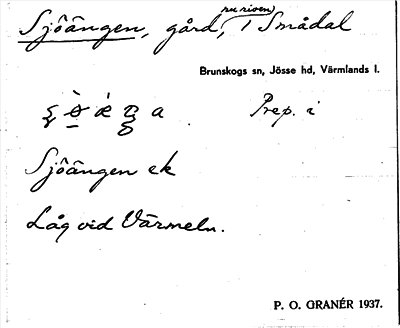 Sjöängen, gård, nu riven, i Smådal
Brunskogs sn, Jösse hd, Värmlands l.
Prep. i
Sjöängen ek
Låg vid Värmeln.
P. O. GRANÉR 1937.